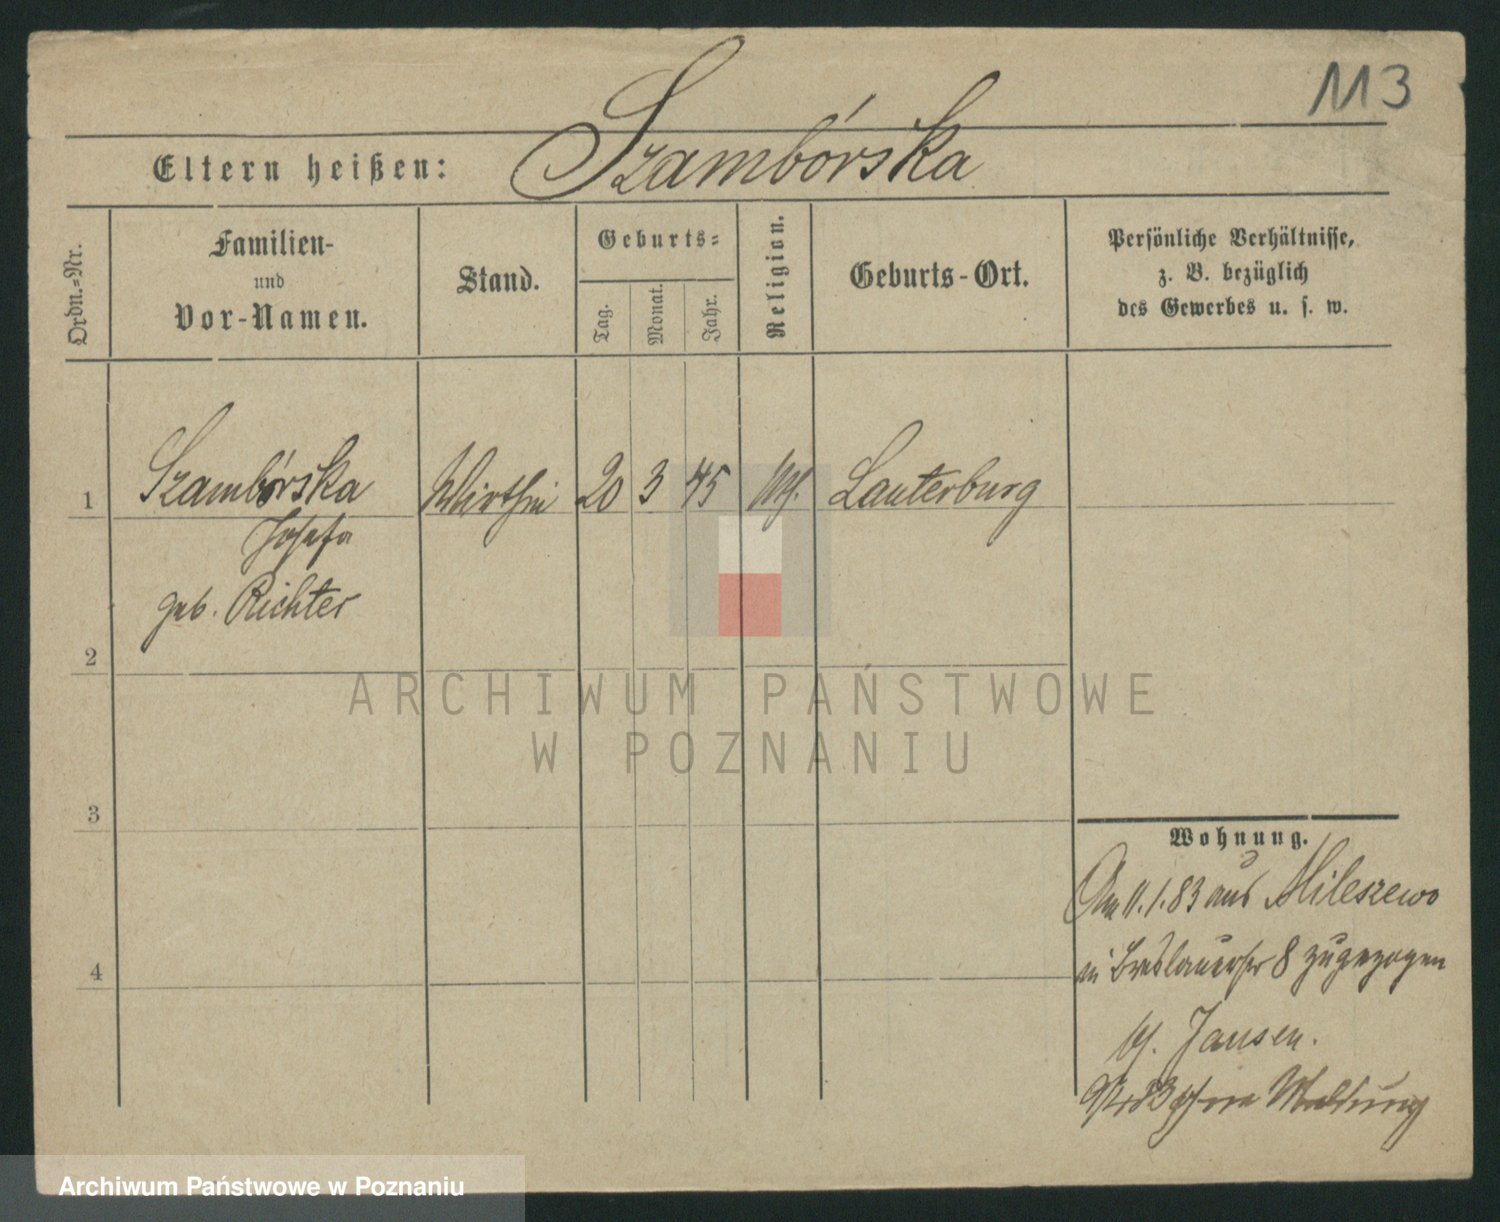 113
Eltern heißen: Szambórska
Ordn.-Nr.
Familien-
und
Vor-Namen.
Stand.
Geburts-
Tag.
Monat.
Jahr.
Religion.
Geburts-Ort.
Persönliche Verhältnisse,
z. B. bezüglich
des Gewerbes u. s. w.
1 Szambórska Wirthin 20 3 45 Lauterburg
Josefa
geb. Richter
2
3
4
Wohnung.
Am 11.1.83 aus Mileszewo
in Breslauerstr 8 zugezogen
Jansen.
83 ohne Meldung
ARCHIWUM PAŃSTWOWE
W POZNANIU
Archiwum Państwowe w Poznaniu